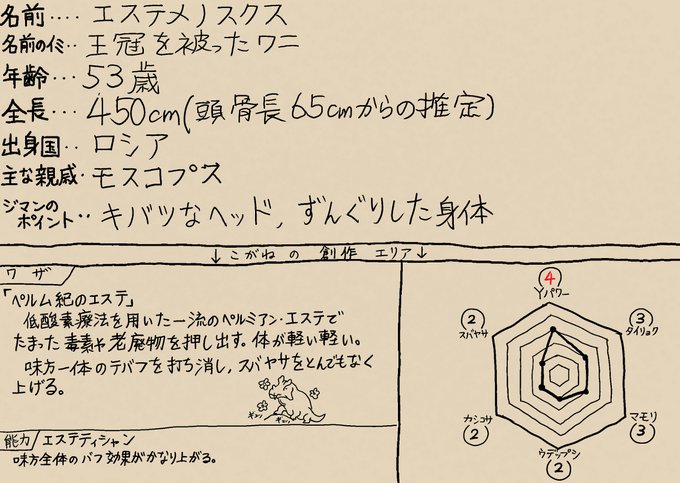 名前‥‥ エステメノスクス
名前のイミ‥ 王冠を被ったワニ
年齢‥‥ 53歳
全長‥‥ 450cm(頭骨長65cmからの推定)
出身国‥ ロシア
主な親戚・モスコプス
ジマンのポイント‥ キバツなヘッド,ずんぐりした身体
↓こがねの 創作 エリア↓
ワザ
「ペルム紀のエステ」
低酸素療法を用いた一流のペルミアン・エステで
たまった毒素や老廃物を押し出す。体が軽い軽い。
味方一体のデバフを打ち消し,スバヤサをとんでもなく
上げる。
ギュッ ギュッ
能力/エステティシャン
味方全体のバフ効果がかなり上がる。
4
Yパワー
2
スバヤサ
3
タイリョク
カシコサ
2
マモリ
3
ウデップシ
2